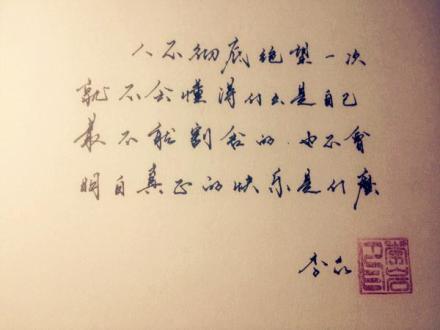 人不彻底绝望一次
就不会懂得什么是自己
最不能割舍的.也不會
明白真正的快乐是什麼
李